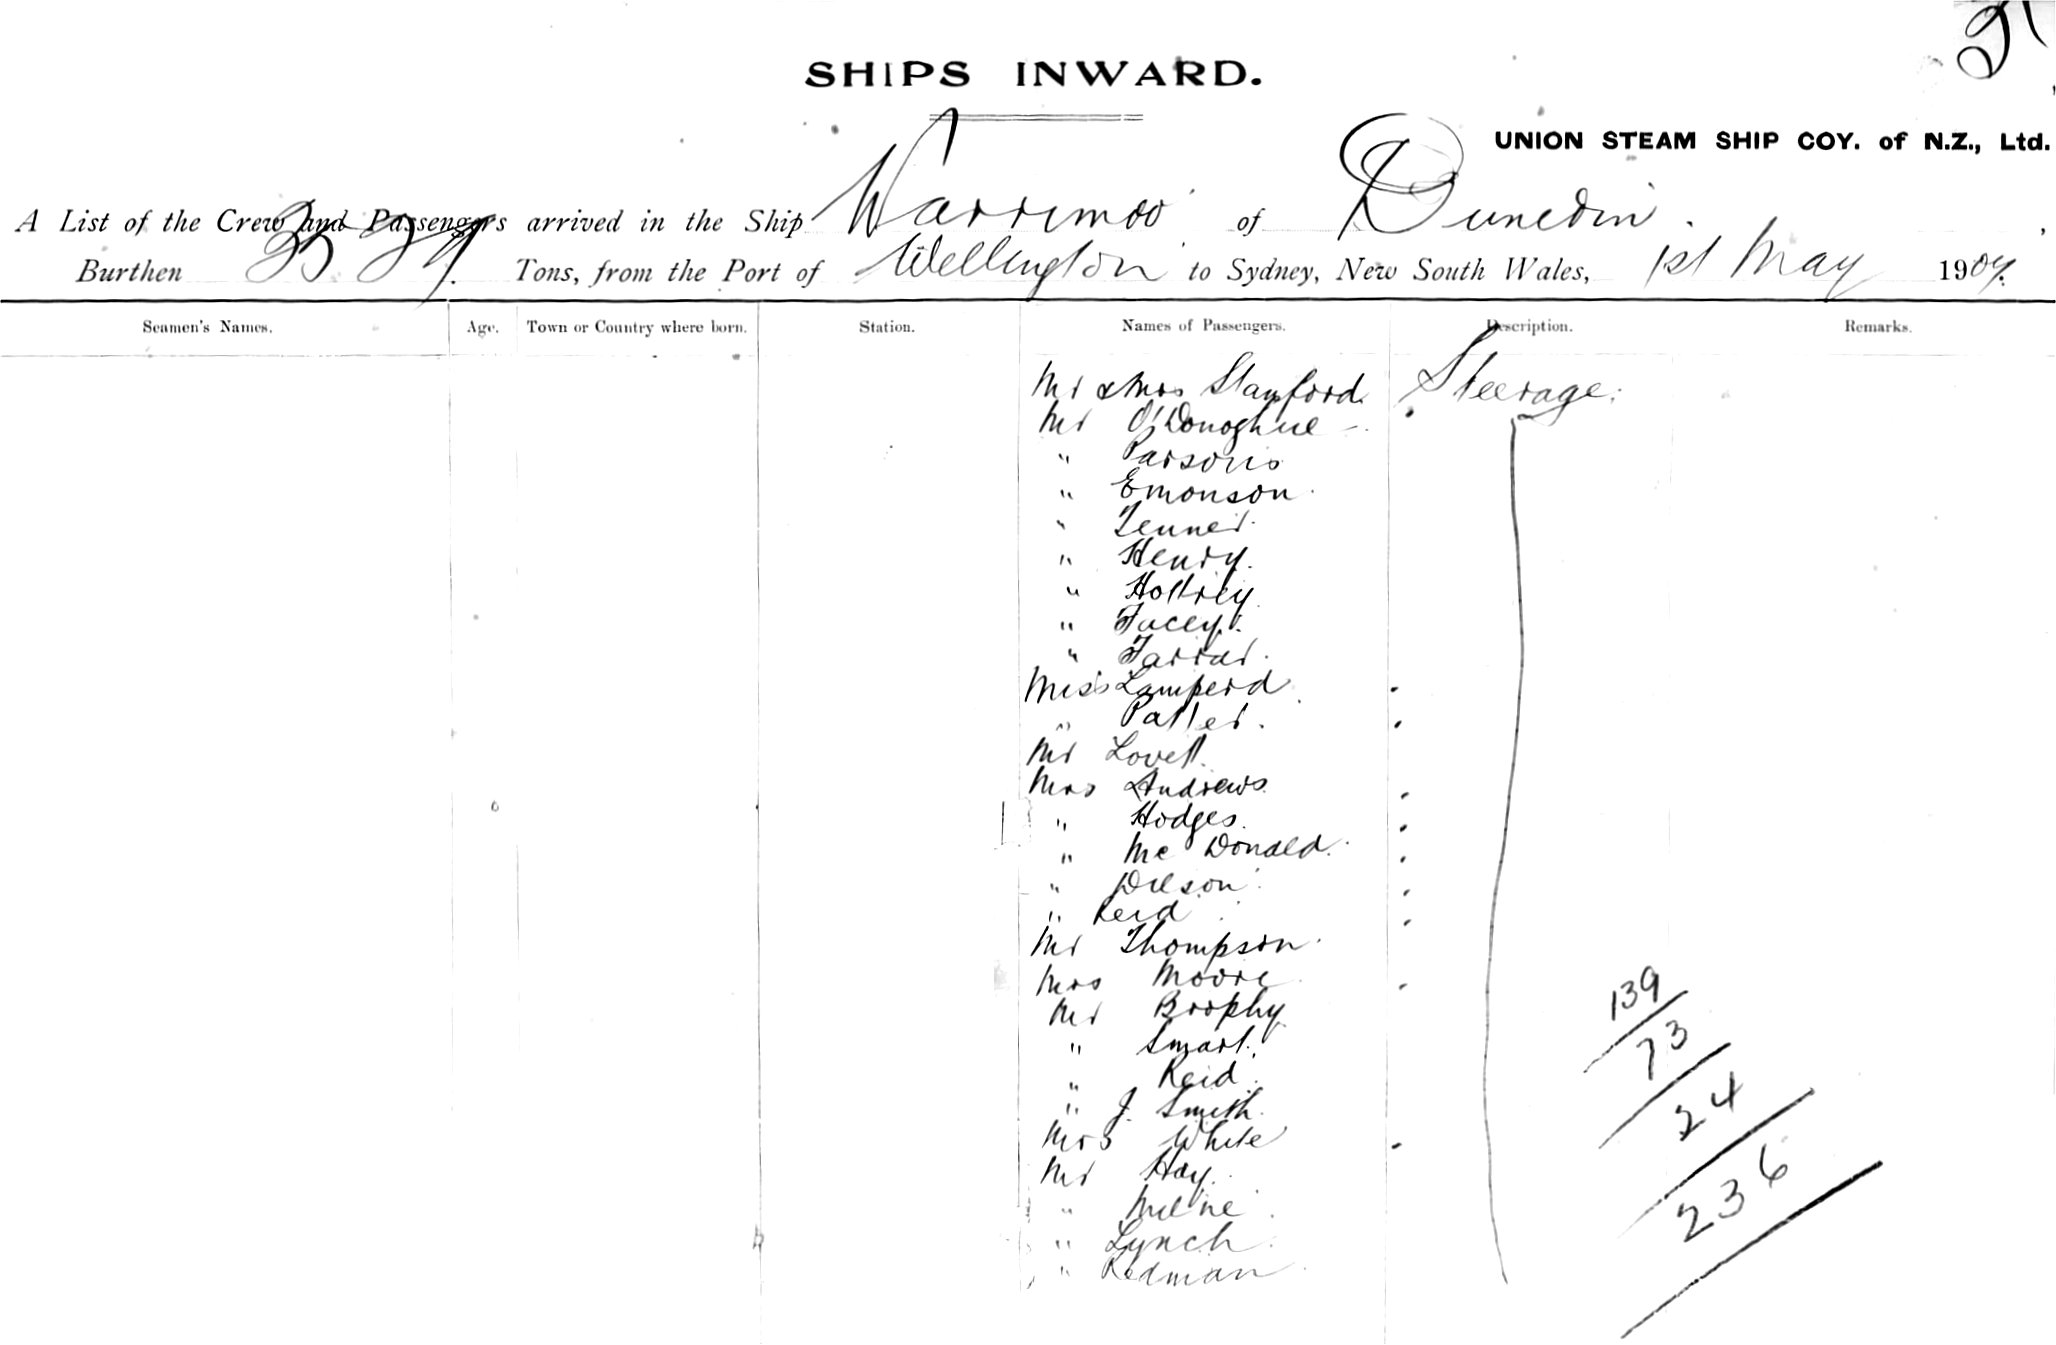 SHIPS INWARD.
UNION STEAM SHIP COY. of N.Z., Ltd.
A List of the Crew and Passengers arrived in the Ship Warrimoo of Dunedin.
Burthen Tons, from the Port of Wellington to Sydney, New South Wales, 1st May 1904.
Seamen's Names. Age. Town or Country where born. Station. Names of Passengers. Description. Remarks.
Mr & Mrs Stanford. Steerage.
Mr O'Donoghue
" Parsons
" Emonson.
" Jenner.
" Henry.
" Holtrey
" Facey.
" Farrar.
Miss Lamperd
" Patter.
Mr Lovett.
Mrs Andrews.
" Hodges.
" Mc Donald.
" Wilson
" Reid
Mr Thompson.
Mrs Moore
Mr Brophy
" Smart.
" Reid.
" J. Smith.
Mrs White
Mr Hay.
" Milne.
" Lynch.
" Redman
139
73
24
236